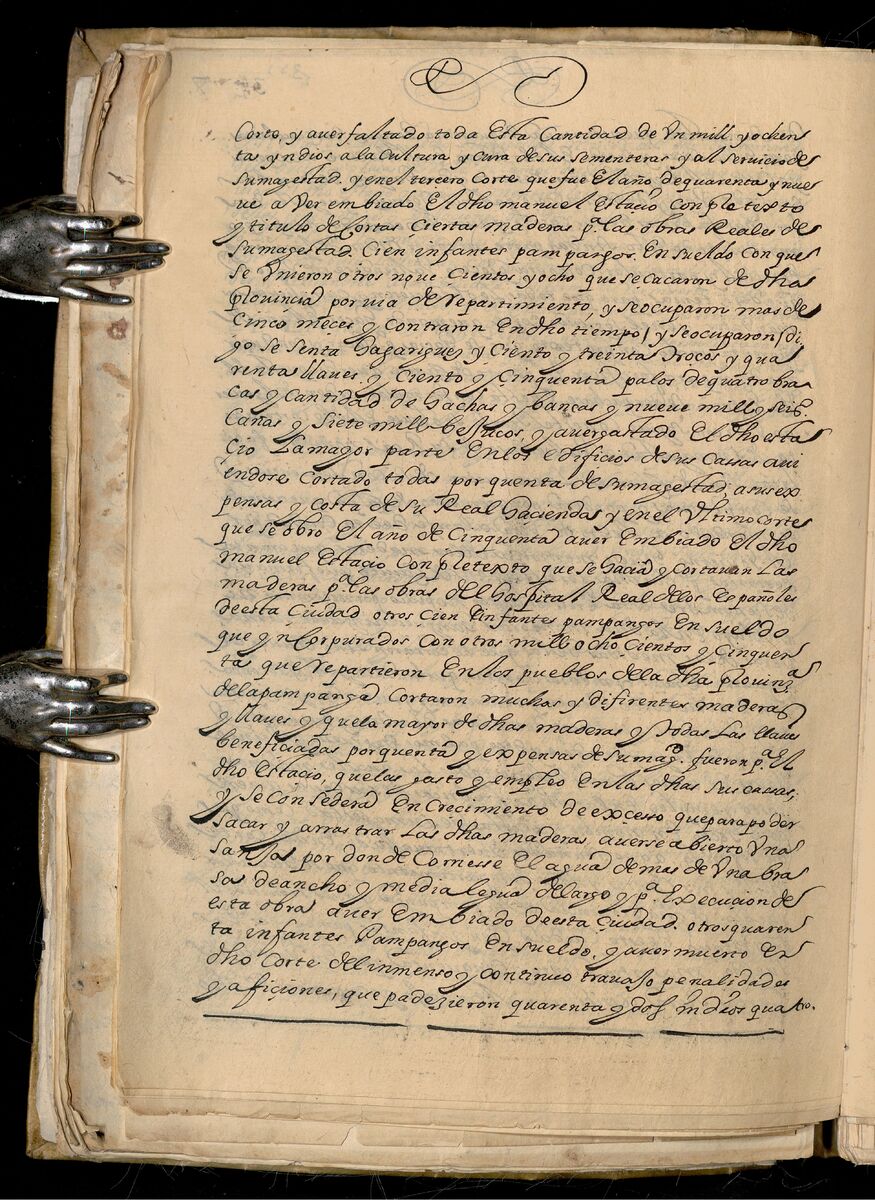 Corto, y auer faltado toda Esta Cantidad de Vn mill. y ochen
ta yndios a la Cultura y cura de sus sementeras y al seruicio de
su magestad. y en el tercero Corte que fue El año de quarenta y nue
ue aver embiado El dho manuel Estacio con pletexto
y titulo de Cortar Ciertas maderas pª. las obras Reales de
su magestad. Cien infantes pampangos. En sueldo con que
se Vnieron otros noue Cientos y ocho que se Cacaron de dha
plouincia por via de repartimiento, y se ocuparon mas de
Cinco meces y Contraron En dho tiempo / y se ocuparon / di
go se senta hagarigues y Ciento y treinta trocos y qua
renta llaues. y Ciento y Cinquenta palos de quatro bra
cas y cantidad de hachas y bancas y nueve mill y seisº.
Cañas y siete mill bejucos, y auer gastado El dho esta
cio La mayor parte En los edificios de sus cassas aui
endose Cortado todas por quenta de su magestad; a sus ex
pensas y costa de su Real hacienda y en el Vltimo Corte
que se obro El año de Cinquenta auer Embiado El dho
manuel Estacio con pletexto que se hacia y Cortauan Las
maderas pª. las obras del hospital Real de los españoles
de esta Ciudad otros Cien Einfantes pampangos En sueldo
que yn Corpurados con otros mill ocho Cientos y Cinquen
ta que repartieron En los pueblos de lla dha plouinzª
de la pampanga Cortaron muchas y difirentes maderas
y llaues y que la mayor de dhas maderas y todas Las llaues
beneficiadas por quenta y expensas de su magᵈ. fueron pª. El
dho Estacio, que las gasto y empleo En las dhas sus cassas;
y se Con sedera En Crecimiento de excesso que para poder
sacar y arrastrar Las dhas maderas auerse abierto Vna
sanja por donde Corriesse El agua de mas de Vna bra
sa de ancho y media legua de largo y pª. Execucion de
esta obra auer Embiado de esta Ciudad. otros quaren
ta infantes Pampangos En sueldo, y auer muerto En
dho Corte del inmenso y continuo trauajo penalidades
y afliçiones, que padezieron quarenta y dos yndios quatro.